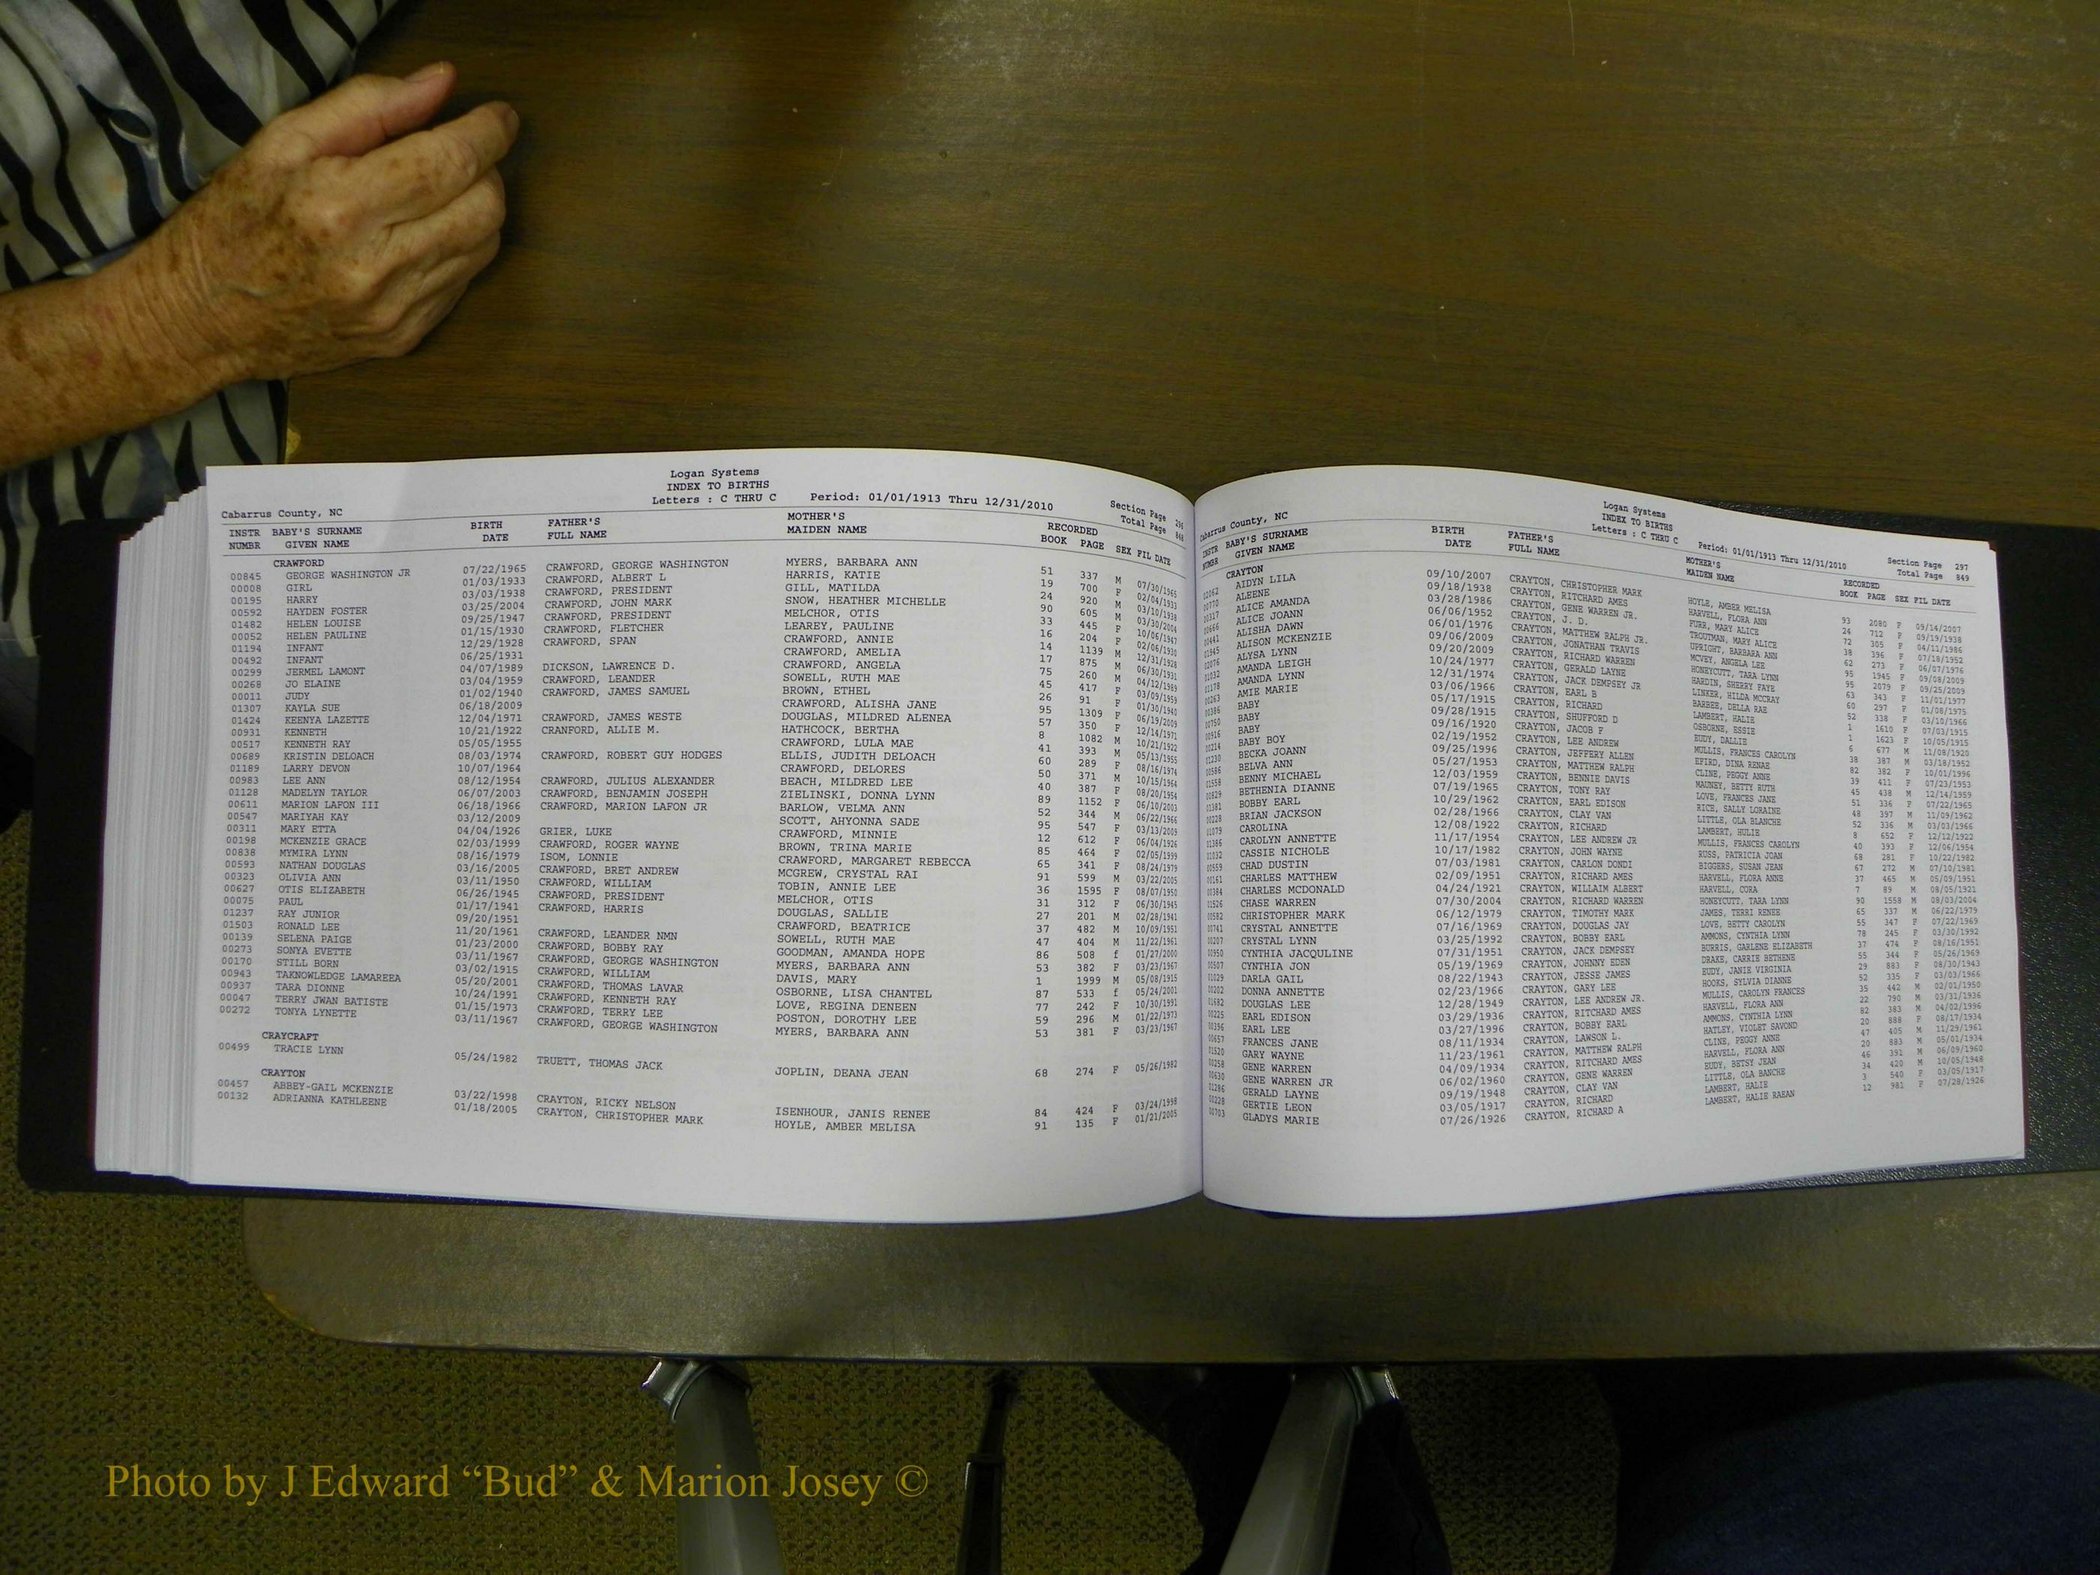 Logan Systems
INDEX TO BIRTHS
Letters : C THRU C Period: 01/01/1913 Thru 12/31/2010
Cabarrus County, NC Section Page 296
Total Page 848
INSTR BABY'S SURNAME BIRTH FATHER'S MOTHER'S RECORDED
NUMBR GIVEN NAME DATE FULL NAME MAIDEN NAME BOOK PAGE SEX FIL DATE
CRAWFORD
00845 GEORGE WASHINGTON JR 07/22/1965 CRAWFORD, GEORGE WASHINGTON MYERS, BARBARA ANN 51 337 M 07/30/1965
00008 GIRL 01/03/1933 CRAWFORD, ALBERT L HARRIS, KATIE 19 700 F 02/04/1933
00195 HARRY 03/03/1938 CRAWFORD, PRESIDENT GILL, MATILDA 24 920 M 03/10/1938
00592 HAYDEN FOSTER 03/25/2004 CRAWFORD, JOHN MARK SNOW, HEATHER MICHELLE 90 605 M 03/30/2004
01482 HELEN LOUISE 09/25/1947 CRAWFORD, PRESIDENT MELCHOR, OTIS 33 445 F 10/06/1947
00052 HELEN PAULINE 01/15/1930 CRAWFORD, FLETCHER LEAREY, PAULINE 16 204 F 02/06/1930
01194 INFANT 12/29/1928 CRAWFORD, SPAN CRAWFORD, ANNIE 14 1139 M 12/31/1928
00492 INFANT 06/25/1931 CRAWFORD, AMELIA 17 875 M 06/30/1931
00299 JERMEL LAMONT 04/07/1989 DICKSON, LAWRENCE D. CRAWFORD, ANGELA 75 260 M 04/12/1989
00268 JO ELAINE 03/04/1959 CRAWFORD, LEANDER SOWELL, RUTH MAE 45 417 F 03/09/1959
00011 JUDY 01/02/1940 CRAWFORD, JAMES SAMUEL BROWN, ETHEL 26 91 F 01/30/1940
01307 KAYLA SUE 06/18/2009 CRAWFORD, ALISHA JANE 95 1309 F 06/19/2009
01424 KEENYA LAZETTE 12/04/1971 CRAWFORD, JAMES WESTE DOUGLAS, MILDRED ALENEA 57 350 F 12/14/1971
00931 KENNETH 10/21/1922 CRANFORD, ALLIE M. HATHCOCK, BERTHA 8 1082 M 10/21/1922
00517 KENNETH RAY 05/05/1955 CRAWFORD, LULA MAE 41 393 M 05/13/1955
00689 KRISTIN DELOACH 08/03/1974 CRAWFORD, ROBERT GUY HODGES ELLIS, JUDITH DELOACH 60 289 F 08/16/1974
01189 LARRY DEVON 10/07/1964 CRAWFORD, DELORES 50 371 M 10/15/1964
00983 LEE ANN 08/12/1954 CRAWFORD, JULIUS ALEXANDER BEACH, MILDRED LEE 40 387 F 08/20/1954
01128 MADELYN TAYLOR 06/07/2003 CRAWFORD, BENJAMIN JOSEPH ZIELINSKI, DONNA LYNN 89 1152 F 06/10/2003
00611 MARION LAFON III 06/18/1966 CRAWFORD, MARION LAFON JR BARLOW, VELMA ANN 52 344 M 06/22/1966
00547 MARIYAH KAY 03/12/2009 SCOTT, AHYONNA SADE 95 547 F 03/13/2009
00311 MARY ETTA 04/04/1926 GRIER, LUKE CRAWFORD, MINNIE 12 612 F 06/04/1926
00198 MCKENZIE GRACE 02/03/1999 CRAWFORD, ROGER WAYNE BROWN, TRINA MARIE 85 464 F 02/05/1999
00838 MYMIRA LYNN 08/16/1979 ISOM, LONNIE CRAWFORD, MARGARET REBECCA 65 341 F 08/24/1979
00593 NATHAN DOUGLAS 03/16/2005 CRAWFORD, BRET ANDREW MCGREW, CRYSTAL RAI 91 599 M 03/22/2005
00323 OLIVIA ANN 03/11/1950 CRAWFORD, WILLIAM TOBIN, ANNIE LEE 36 1595 F 08/07/1950
00627 OTIS ELIZABETH 06/26/1945 CRAWFORD, PRESIDENT MELCHOR, OTIS 31 312 F 06/30/1945
00075 PAUL 01/17/1941 CRAWFORD, HARRIS DOUGLAS, SALLIE 27 201 M 02/28/1941
01237 RAY JUNIOR 09/20/1951 CRAWFORD, BEATRICE 37 482 M 10/09/1951
01503 RONALD LEE 11/20/1961 CRAWFORD, LEANDER NMN SOWELL, RUTH MAE 47 404 M 11/22/1961
00139 SELENA PAIGE 01/23/2000 CRAWFORD, BOBBY RAY GOODMAN, AMANDA HOPE 86 508 f 01/27/2000
00273 SONYA EVETTE 03/11/1967 CRAWFORD, GEORGE WASHINGTON MYERS, BARBARA ANN 53 382 F 03/23/1967
00170 STILL BORN 03/02/1915 CRAWFORD, WILLIAM DAVIS, MARY 1 1999 M 05/08/1915
00943 TAKNOWLEDGE LAMAREEA 05/20/2001 CRAWFORD, THOMAS LAVAR OSBORNE, LISA CHANTEL 87 533 f 05/24/2001
00937 TARA DIONNE 10/24/1991 CRAWFORD, KENNETH RAY LOVE, REGINA DENEEN 77 242 F 10/30/1991
00047 TERRY JWAN BATISTE 01/15/1973 CRAWFORD, TERRY LEE POSTON, DOROTHY LEE 59 296 M 01/22/1973
00272 TONYA LYNETTE 03/11/1967 CRAWFORD, GEORGE WASHINGTON MYERS, BARBARA ANN 53 381 F 03/23/1967
CRAYCRAFT
00499 TRACIE LYNN 05/24/1982 TRUETT, THOMAS JACK JOPLIN, DEANA JEAN 68 274 F 05/26/1982
CRAYTON
00457 ABBEY-GAIL MCKENZIE 03/22/1998 CRAYTON, RICKY NELSON ISENHOUR, JANIS RENEE 84 424 F 03/24/1998
00132 ADRIANNA KATHLEENE 01/18/2005 CRAYTON, CHRISTOPHER MARK HOYLE, AMBER MELISA 91 135 F 01/21/2005
Logan Systems
INDEX TO BIRTHS
Letters : C THRU C Period: 01/01/1913 Thru 12/31/2010
Cabarrus County, NC Section Page 297
Total Page 849
INSTR BABY'S SURNAME BIRTH FATHER'S MOTHER'S RECORDED
NUMBR GIVEN NAME DATE FULL NAME MAIDEN NAME BOOK PAGE SEX FIL DATE
CRAYTON
02062 AIDYN LILA 09/10/2007 CRAYTON, CHRISTOPHER MARK HOYLE, AMBER MELISA 93 2080 F 09/14/2007
00770 ALEENE 09/18/1938 CRAYTON, RITCHARD AMES HARVELL, FLORA ANN 24 712 F 09/19/1938
00317 ALICE AMANDA 03/28/1986 CRAYTON, GENE WARREN JR. FURR, MARY ALICE 72 305 F 04/11/1986
00666 ALICE JOANN 06/06/1952 CRAYTON, J. D. TROUTMAN, MARY ALICE 38 396 F 07/18/1952
00441 ALISHA DAWN 06/01/1976 CRAYTON, MATTHEW RALPH JR. UPRIGHT, BARBARA ANN 62 273 F 06/07/1976
01945 ALISON MCKENZIE 09/06/2009 CRAYTON, JONATHAN TRAVIS MCVEY, ANGELA LEE 95 1945 F 09/08/2009
02076 ALYSA LYNN 09/20/2009 CRAYTON, RICHARD WARREN HONEYCUTT, TARA LYNN 95 2079 F 09/25/2009
01032 AMANDA LEIGH 10/24/1977 CRAYTON, GERALD LAYNE HARDIN, SHERRY FAYE 63 343 F 11/01/1977
01178 AMANDA LYNN 12/31/1974 CRAYTON, JACK DEMPSEY JR LINKER, HILDA MCCRAY 60 297 F 01/08/1975
00263 AMIE MARIE 03/06/1966 CRAYTON, EARL B BARBEE, DELLA RAE 52 338 F 03/10/1966
00386 BABY 05/17/1915 CRAYTON, RICHARD LAMBERT, HALIE 1 1610 F 07/03/1915
00750 BABY 09/28/1915 CRAYTON, SHUFFORD D OSBORNE, ESSIE 1 1623 F 10/05/1915
00916 09/16/1920 CRAYTON, JACOB F EUDY, DALLIE 6 677 M 11/08/1920
00214 BABY BOY 02/19/1952 CRAYTON, LEE ANDREW MULLIS, FRANCES CAROLYN 38 387 M 03/18/1952
01230 BECKA JOANN 09/25/1996 CRAYTON, JEFFERY ALLEN EFIRD, DINA RENAE 82 382 F 10/01/1996
00586 BELVA ANN 05/27/1953 CRAYTON, MATTHEW RALPH CLINE, PEGGY ANNE 39 411 F 07/23/1953
01558 BENNY MICHAEL 12/03/1959 CRAYTON, BENNIE DAVIS MAUNEY, BETTY RUTH 45 438 M 12/14/1959
00829 BETHENIA DIANNE 07/19/1965 CRAYTON, TONY RAY LOVE, FRANCES JANE 51 336 F 07/22/1965
01381 BOBBY EARL 10/29/1962 CRAYTON, EARL EDISON RICE, SALLY LORAINE 48 397 M 11/09/1962
00228 BRIAN JACKSON 02/28/1966 CRAYTON, CLAY VAN LITTLE, OLA BLANCHE 52 336 M 03/03/1966
01079 CAROLINA 12/08/1922 CRAYTON, RICHARD LAMBERT, HULIE 8 652 F 12/12/1922
01386 CAROLYN ANNETTE 11/17/1954 CRAYTON, LEE ANDREW JR MULLIS, FRANCES CAROLYN 40 393 F 12/06/1954
01032 CASSIE NICHOLE 10/17/1982 CRAYTON, JOHN WAYNE RUSS, PATRICIA JOAN 68 281 F 10/22/1982
00559 CHAD DUSTIN 07/03/1981 CRAYTON, CARLON DONDI BIGGERS, SUSAN JEAN 67 272 M 07/10/1981
00161 CHARLES MATTHEW 02/09/1951 CRAYTON, RICHARD AMES HARVELL, FLORA ANNE 37 465 M 05/09/1951
00384 CHARLES MCDONALD 04/24/1921 CRAYTON, WILLAIM ALBERT HARVELL, CORA 7 89 M 08/05/1921
01526 CHASE WARREN 07/30/2004 CRAYTON, RICHARD WARREN HONEYCUTT, TARA LYNN 90 1558 M 08/03/2004
00582 CHRISTOPHER MARK 06/12/1979 CRAYTON, TIMOTHY MARK JAMES, TERRI RENEE 65 337 M 06/22/1979
00741 CRYSTAL ANNETTE 07/16/1969 CRAYTON, DOUGLAS JAY LOVE, BETTY CAROLYN 55 347 F 07/22/1969
00207 CRYSTAL LYNN 03/25/1992 CRAYTON, BOBBY EARL AMMONS, CYNTHIA LYNN 78 245 F 03/30/1992
00950 CYNTHIA JACQULINE 07/31/1951 CRAYTON, JACK DEMPSEY BURRIS, GARLENE ELIZABETH 37 474 F 08/16/1951
00507 CYNTHIA JON 05/19/1969 CRAYTON, JOHNNY EDEN DRAKE, CARRIE BETHENE 55 344 F 05/26/1969
01029 DARLA GAIL 08/22/1943 CRAYTON, JESSE JAMES EUDY, JANIE VIRGINIA 29 883 F 08/30/1943
00202 DONNA ANNETTE 02/23/1966 CRAYTON, GARY LEE HOOKS, SYLVIA DIANNE 52 335 F 03/03/1966
01682 DOUGLAS LEE 12/28/1949 CRAYTON, LEE ANDREW JR. MULLIS, CAROLYN FRANCES 35 442 M 02/01/1950
00225 EARL EDISON 03/29/1936 CRAYTON, RITCHARD AMES HARVELL, FLORA ANN 22 790 M 03/31/1936
00396 EARL LEE 03/27/1996 CRAYTON, BOBBY EARL AMMONS, CYNTHIA LYNN 82 383 M 04/02/1996
00657 FRANCES JANE 08/11/1934 CRAYTON, LAWSON L. HATLEY, VIOLET SAVOND 20 888 F 08/17/1934
01520 GARY WAYNE 11/23/1961 CRAYTON, MATTHEW RALPH CLINE, PEGGY ANNE 47 405 M 11/29/1961
00258 GENE WARREN 04/09/1934 CRAYTON, RITCHARD AMES HARVELL, FLORA ANN 20 883 M 05/01/1934
00630 GENE WARREN JR 06/02/1960 CRAYTON, GENE WARREN EUDY, BETSY JEAN 46 391 M 06/09/1960
01286 GERALD LAYNE 09/19/1948 CRAYTON, CLAY VAN LITTLE, OLA BANCHE 34 420 M 10/05/1948
00228 GERTIE LEON 03/05/1917 CRAYTON, RICHARD LAMBERT, HALIE 3 540 F 03/05/1917
00703 GLADYS MARIE 07/26/1926 CRAYTON, RICHARD A LAMBERT, HALIE RAEAN 12 981 F 07/28/1926
Photo by J Edward “Bud” & Marion Josey ©